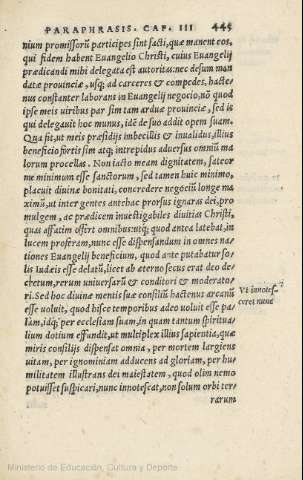 PARAPHRASIS. CAP. III 445
nium promissorũ participes sint facti, quæ manent eos,
qui fidem habent Euangelio Christi, cuius Euangelij
prædicandi mihi delegata est autoritas: nec desum man
datæ prouinciæ, usq; ad carceres & compedes, hacte-
nus constanter laborans in Euangelij negocio, nõ quod
ipse meis uiribus par sim tam arduæ prouinciæ, sed is
qui delegauit hoc munus, idẽ de suo addit opem suam.
Qua fit, ut meis præsidijs imbecillis & inualidus, illius
beneficio fortis sim atq; intrepidus aduersus omnẽ ma
lorum procellas. Non iacto meam dignitatem, fateor
me minimum esse sanctorum, sed tamen huic minimo,
placuit diuinæ bonitati, concredere negociũ longe ma
ximũ, ut inter gentes antehac prorsus ignaras dei, pro
mulgem, ac prædicem inuestigabiles diuitias Christi,
quas affatim offert omnibus: utq; quod antea latebat, in
lucem proferam, nunc esse dispensandum in omnes na-
tiones Euangelij beneficium, quod ante putabatur so-
lis Iudæis esse delatũ, licet ab æterno secus erat deo de-
cretum, rerum uniuersarũ & conditori & moderato-
ri. Sed hoc diuinæ mentis suæ consiliũ hactenus arcanũ
esse uoluit, quod hisce temporibus adeo uoluit esse pa-
lam, idq; per ecclesiam suam, in quam tantum spiritua-
lium dotium effundit, ut multiplex illius sapientia, quæ
miris consilijs dispensat omnia, per mortem largiens
uitam, per ignominiam adducens ad gloriam, per hu-
militatem illustrans dei maiestatem, quod olim nemo
potuisset suspicari, nunc innotescat, non solum orbi ter-
rarum
Vt innotes-
ceret nunc
Ministerio de Educación, Cultura y Deporte